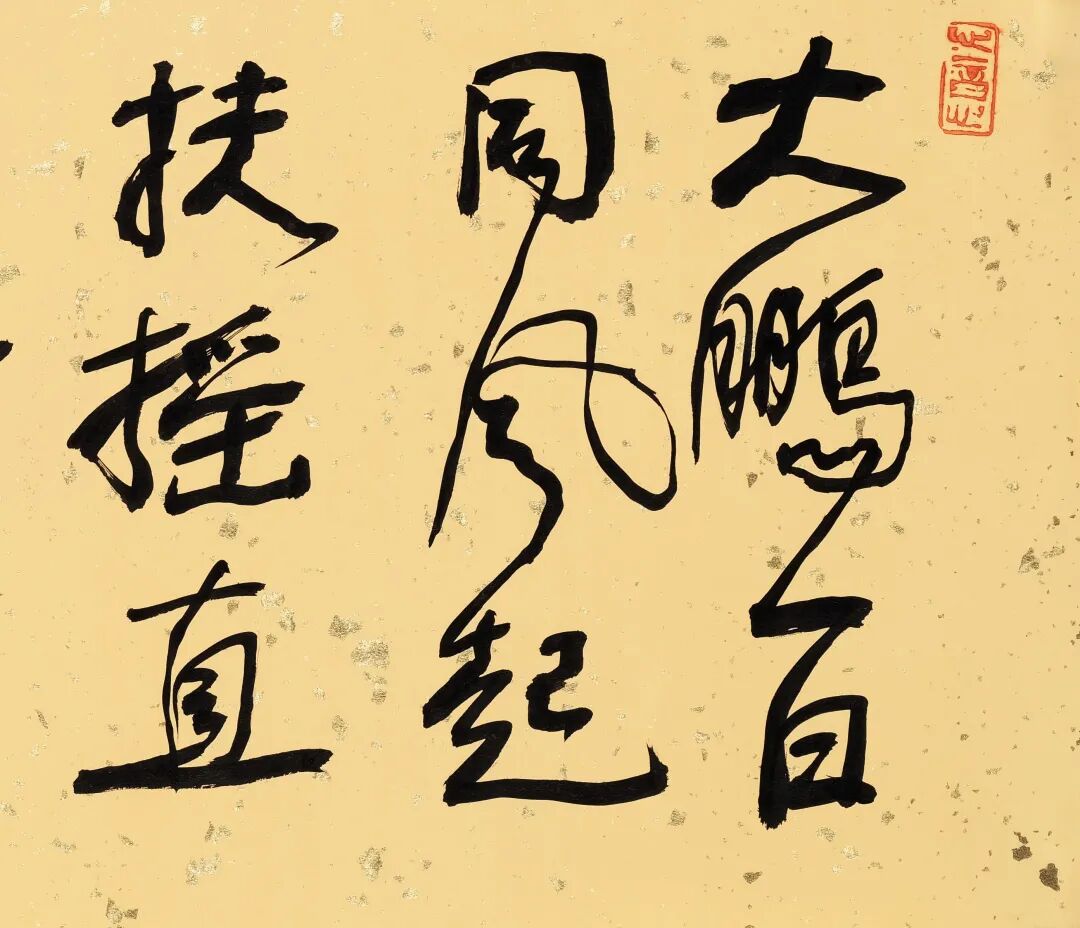 大鵬一日
同風起
扶摇直